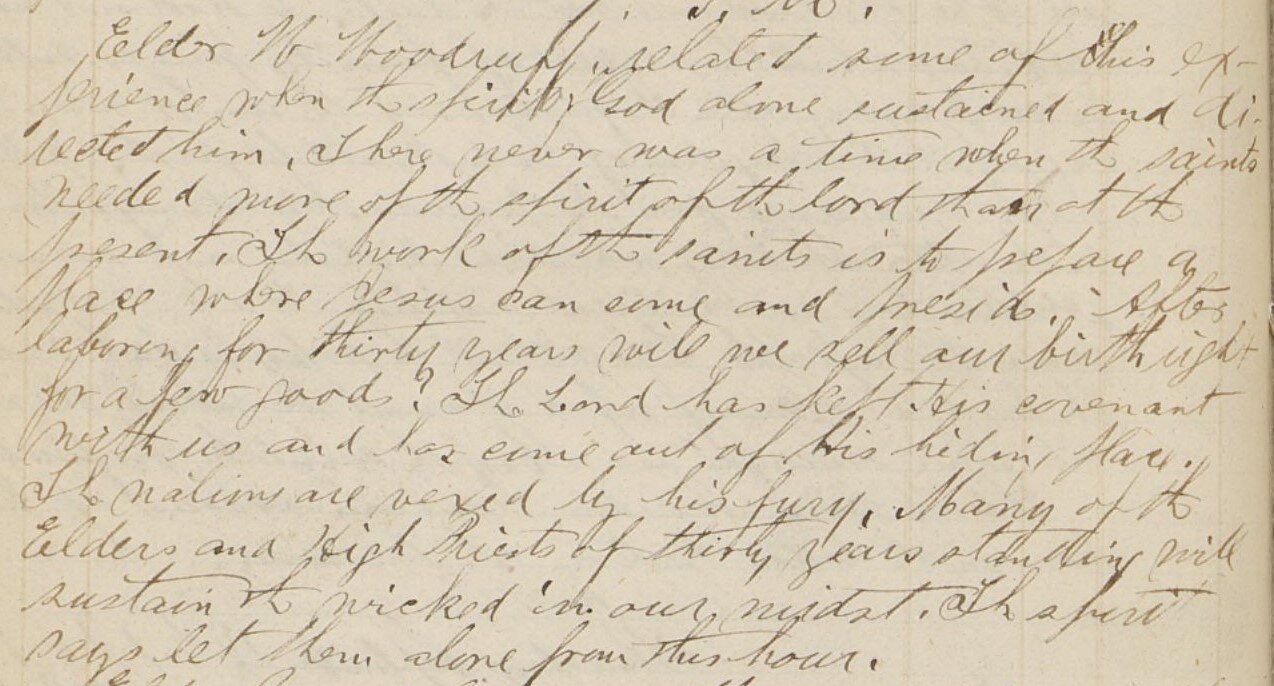 P. M.
Elder W Woodruff, related some of his ex-
perience when th spirit of God alone sustained and di-
rected him. There never was a time when th saints
needed more of th spirit of th lord than at th
present. Th work of th saints is to prepare a
place where Jesus can come and preside. After
laboring for thirty years will we sell our birthright
for a few goods? Th Lord has kept His covenant
with us and has come out of his hiding place.
Th nations are vexed by his fury. Many of th
Elders and High Priests of thirty years standing will
sustain th wicked in our midst. Th spirit
says let them alone from this hour.